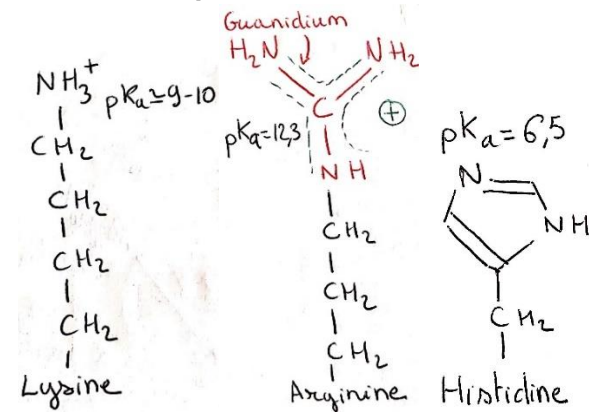 NH3+
pKa≃9-10
CH2
CH2
CH2
CH2
Lysine
Guanidium
H2N
NH2
C
+
pKa=12,3
NH
CH2
CH2
CH2
Arginine
pKa=6,5
N
NH
CH2
Histidine